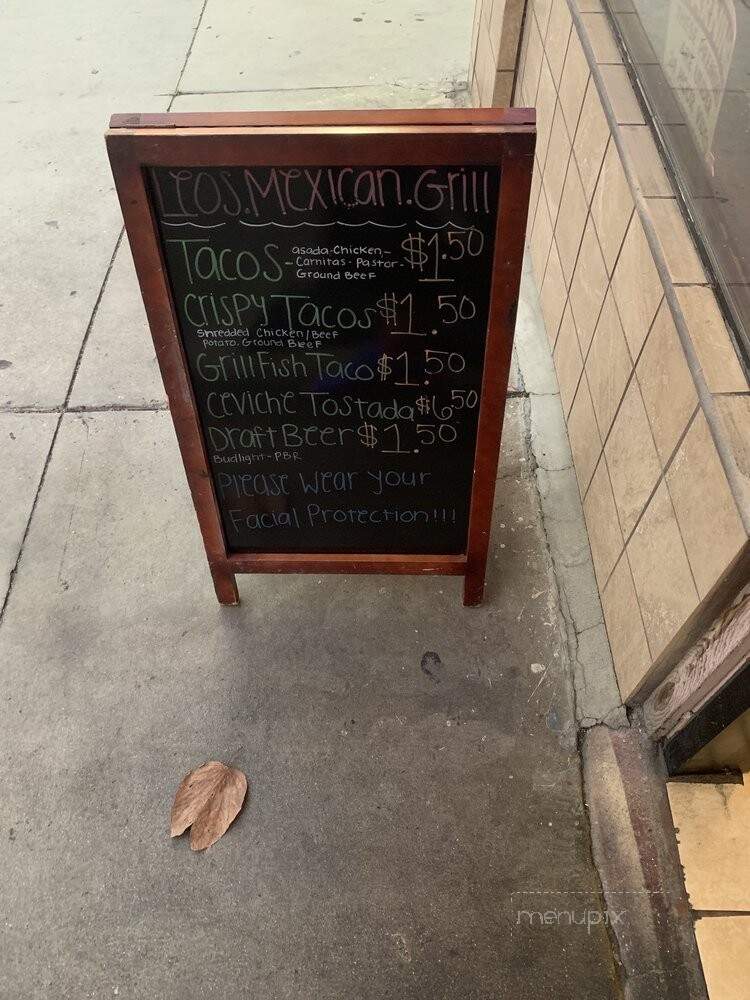 Leos.Mexican.Grill
Tacos - asada-Chicken- $1.50
-Carnitas-Pastor-
Ground Beef
Crispy Tacos $1.50
Shredded Chicken/Beef
Potato. Ground Beef
Grill Fish Taco $1.50
Ceviche Tostada $6.50
Draft Beer $1.50
Budlight-PBR
Please Wear your
Facial Protection!!!
menupix